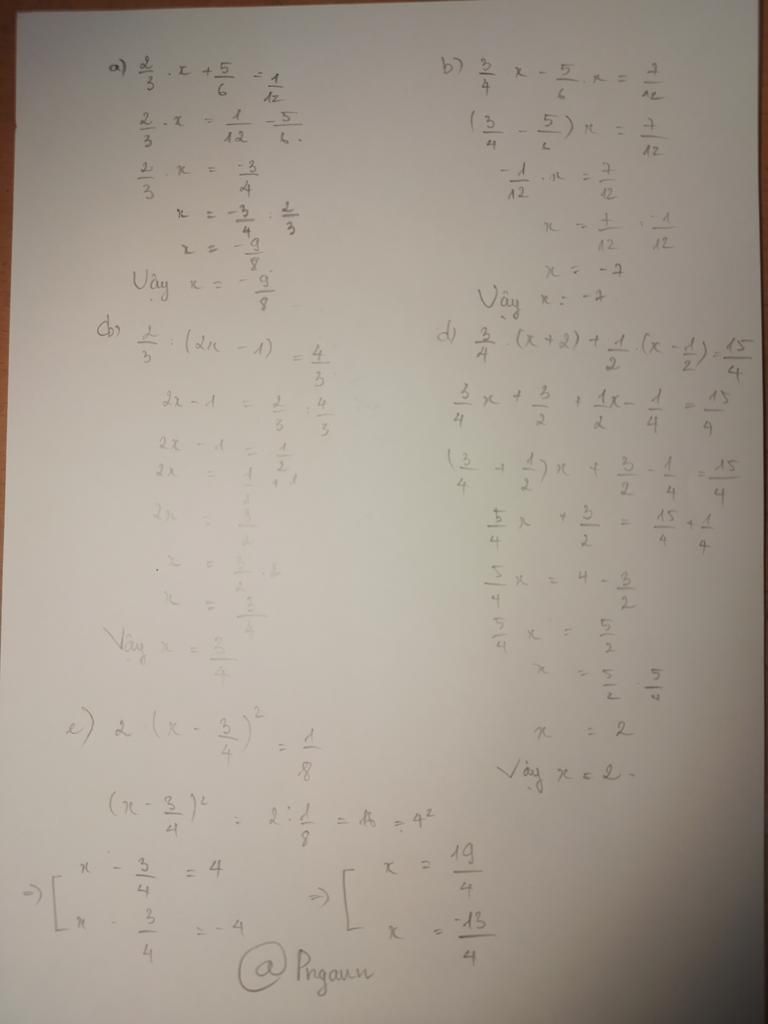 a) 2/3 . x + 5/6 = 1/12
2/3 . x = 1/12 - 5/6.
2/3 . x = -3/4
x = -3/4 : 2/3
x = -9/8
Vậy x = -9/8
b) 3/4 x - 5/6 . x = 7/12
(3/4 - 5/6) x = 7/12
-1/12 . x = 7/12
x = 7/12 : -1/12
x = -7
Vậy x = -7
2/3 : (2x - 1) = 4/3
2x - 1 = 2/3 : 4/3
2x - 1 = 1/2
2x = 1/2 + 1
2x = 3/2
x = 3/2 : 2
x = 3/4
Vậy x = 3/4
d) 3/4 . (x + 2) + 1/2 . (x - 1/2) = 15/4
3/4 x + 3/2 + 1/2 x - 1/4 = 15/4
(3/4 + 1/2) x + 3/2 - 1/4 = 15/4
5/4 x + 3/2 = 15/4 + 1/4
5/4 x = 4 - 3/2
5/4 x = 5/2
x = 5/2 : 5/4
x = 2
Vậy x = 2.
e) 2 (x - 3/4)² = 1/8
(x - 3/4)² = 2 : 1/8 = 16 = 4²
=> [ x - 3/4 = 4 => [ x = 19/4
x - 3/4 = -4 x = -13/4
@ Pngaun